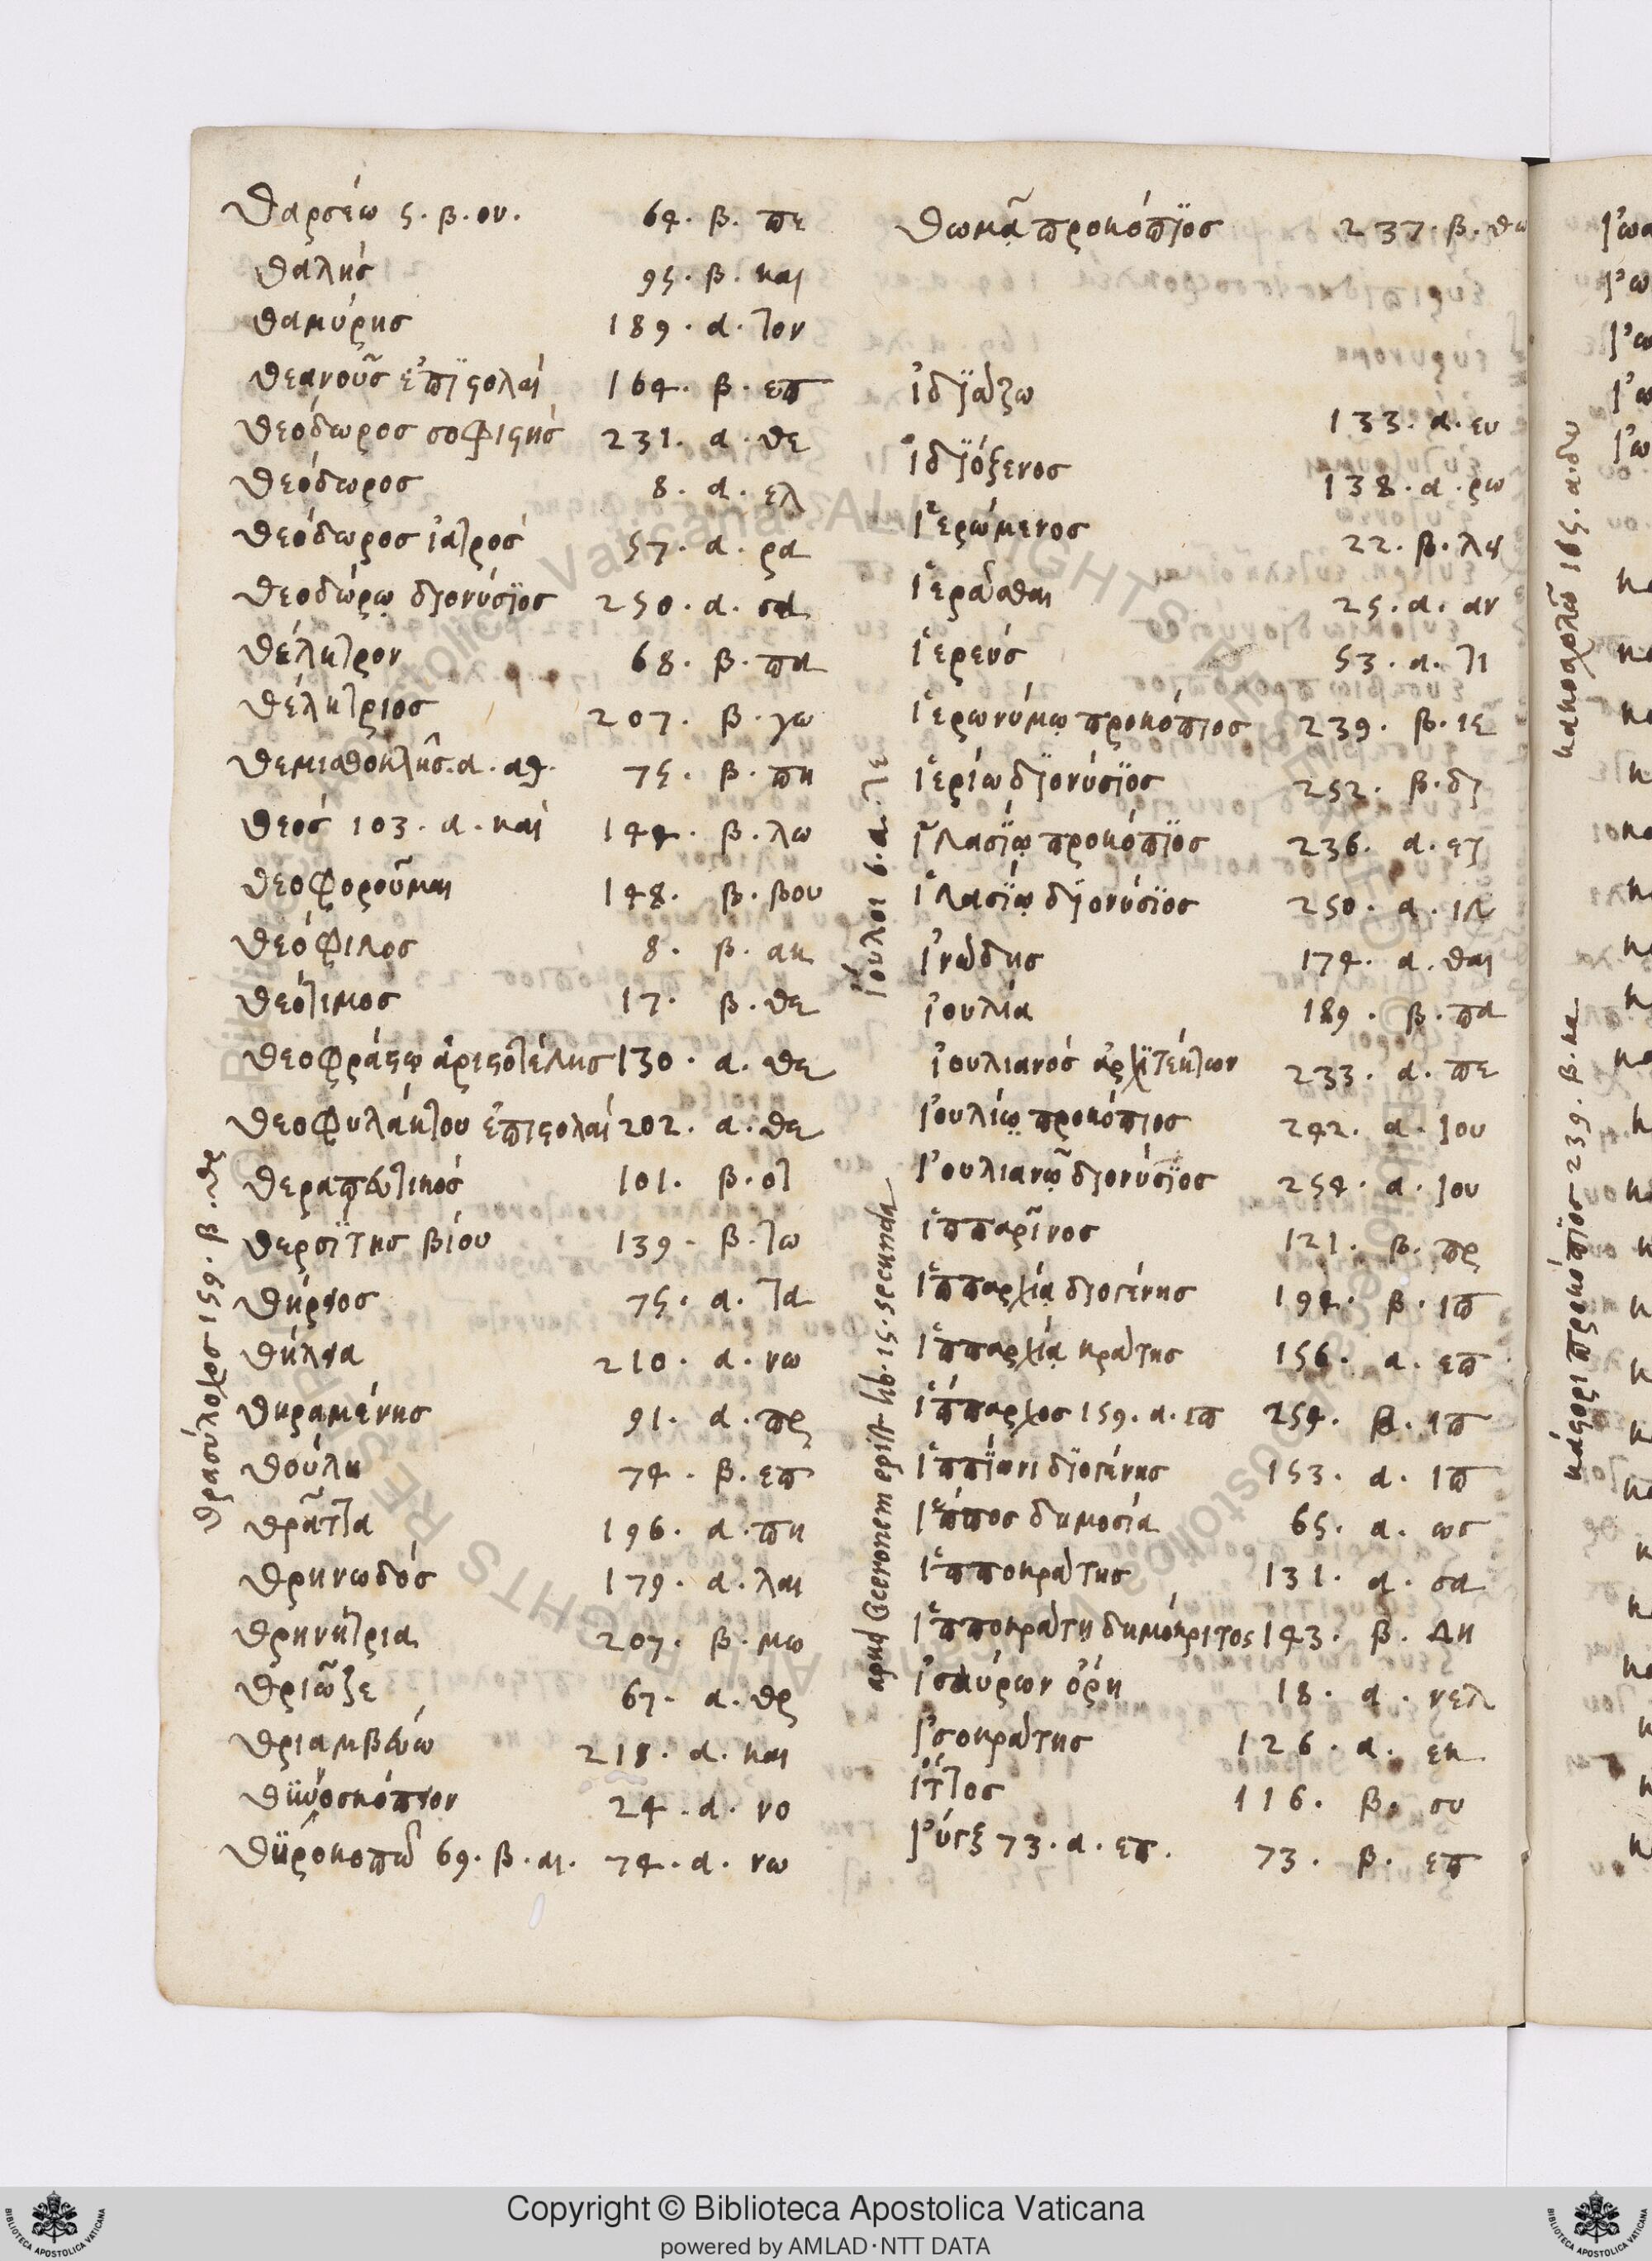 θαρσέω 5. β. ον. 64. β. πε
θαλής 95. β. και
θαμύρης 189. α. τον
θεανοῦς ἐπιστολαί 164. β. επ
θεόδωρος σοφιστής 231. α. θε
θεόδωρος 8. α. ελ
θεόδωρος ἰατρός 57. α. ρα
θεοδώρῳ διονύσϊος 250. α. σα
θέλητρον 68. β. πα
θελήτριος 207. β. γω
θεμισθοκλῆς. α. αθ. 75. β. πη
θεός 103. α. καί 144. β. λω
θεοφοροῦμαι 148. β. βου
θεόφιλος 8. β. ακ
θεότιμος 17. β. θε
θεοφράστῳ ἀριστοτέλης 130. α. θε
θεοφυλάκτου ἐπιστολαί 202. α. θε
θεραπευτικός 101. β. οτ
θερσίτης βίου 139. β. τω
θήρνος 75. α. τα
210. α. νω
θηραμένης 91. α. πρ
θούλη 74. β. επ
θρᾶττα 196. α. πη
θρηνωδός 179. α. λαι
θρηνήτρια 207. β. μω
θριῶζε 67. α. θρ
θριαμβεύω 218. α. και
24. α. νο
θϋροκοπῶ 69. β. αι. 74. α. νω
θρασύλοχος 159. β. θρ
θωμᾷ προκόπϊος 237. β. θω
ἰδϊάζω 133. α. ευ
ἰδϊόξενος 138. α. ρω
ἱερώμενος 22. β. λη
ἱερᾶσθαι 25. α. αν
ἱερεύς 53. α. τι
ἱερωνύμῳ προκόπιος 239. β. ιε
ἱερίω διονύσϊος 252. β. δι
ἱλασίῳ προκόπϊος 236. α. ει
ἱλασίῳ διονύσϊος 250. α. ιλ
ἰνώδης 174. α. θαι
ἰουλία 189. β. πα
ἰουλιανός ἀρχιτέκτων 233. α. πε
ἰουλίῳ προκόπιος 242. α. ιου
ἰουλιανῷ διονύσϊος 254. α. ιου
ἱππαρῖνος 121. β. πρ
ἱππαρχίᾳ διογένης 194. β. ιπ
ἱππαρχίᾳ κράτης 156. α. επ
ἵππαρχος 159. α. ιπ 254. β. ιπ
ἱππίωνι διογένης 153. α. ιπ
ἵππος δημοσία 65. α. ως
ἱπποκράτης 131. α. σα
ἱπποκράτη δημόκριτος 143. β. δη
ἰσαύρων ὄρη 18. α. νελ
ἰσοκράτης 126. α. εκ
116. β. συ
ἰύγξ 73. α. επ. 73. β. επ
ἴουλοι 6. α. τε
apud Ciceronem epist. lib. 15. secunda
κακοχολῶ 165. α. δω
κάστορι προκόπϊος 239. β. κα
Copyright © Biblioteca Apostolica Vaticana
powered by AMLAD·NTT DATA